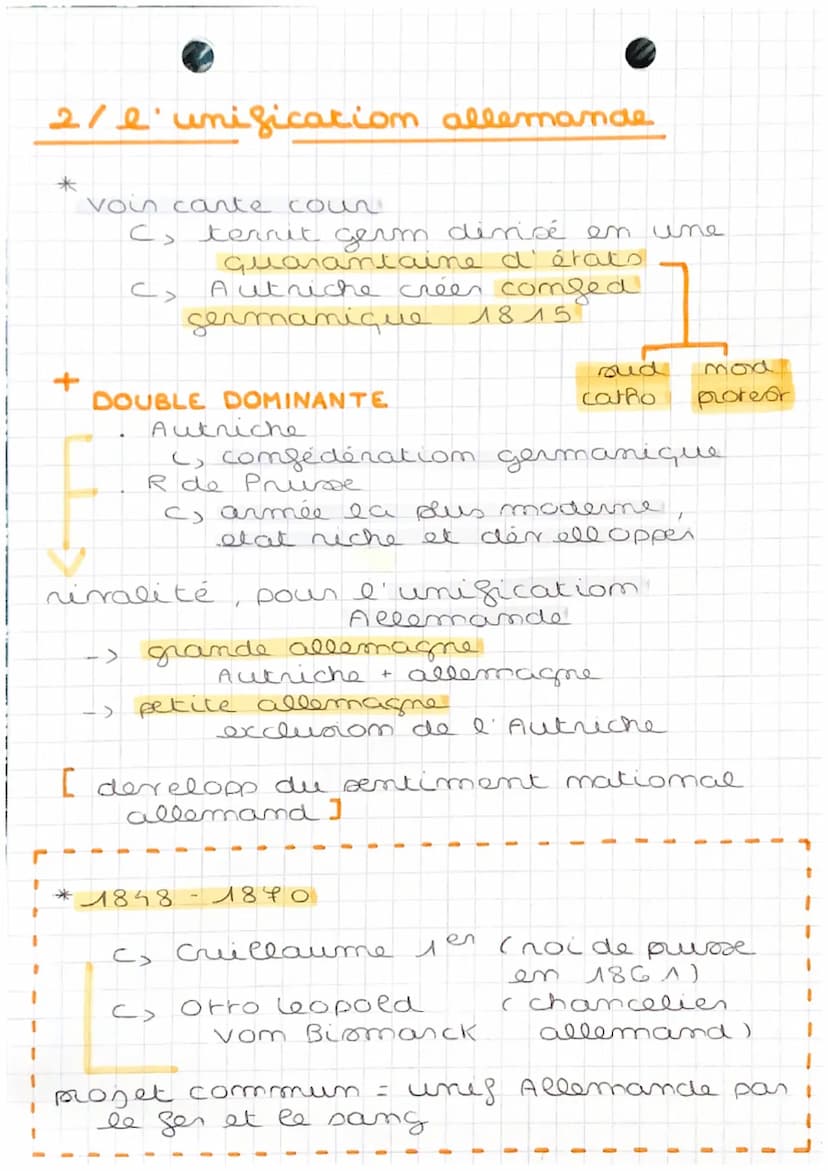 2/ l'unification allemande
*
voir carte cour
↳ territ germ divisé en une
quarantaine d'états
↳ Autriche créer confed
germanique 1815
sud nord
catho protest
+
DOUBLE DOMINANTE
. Autriche
↳ confédération germanique
. R de Prusse
↳ armée la plus moderne,
etat riche et dévellopper
rivalité, pour l'unification
Allemande
-> grande allemagne
Autriche + allemagne
-> petite allemagne
exclusion de l'Autriche
[ developp du sentiment national
allemand ]
* 1848 - 1870
↳ Guillaume 1er (roi de prusse
en 1861)
↳ Otto Leopold (chancelier
von Bismarck allemand)
projet commun = unif Allemande par
le fer et le sang